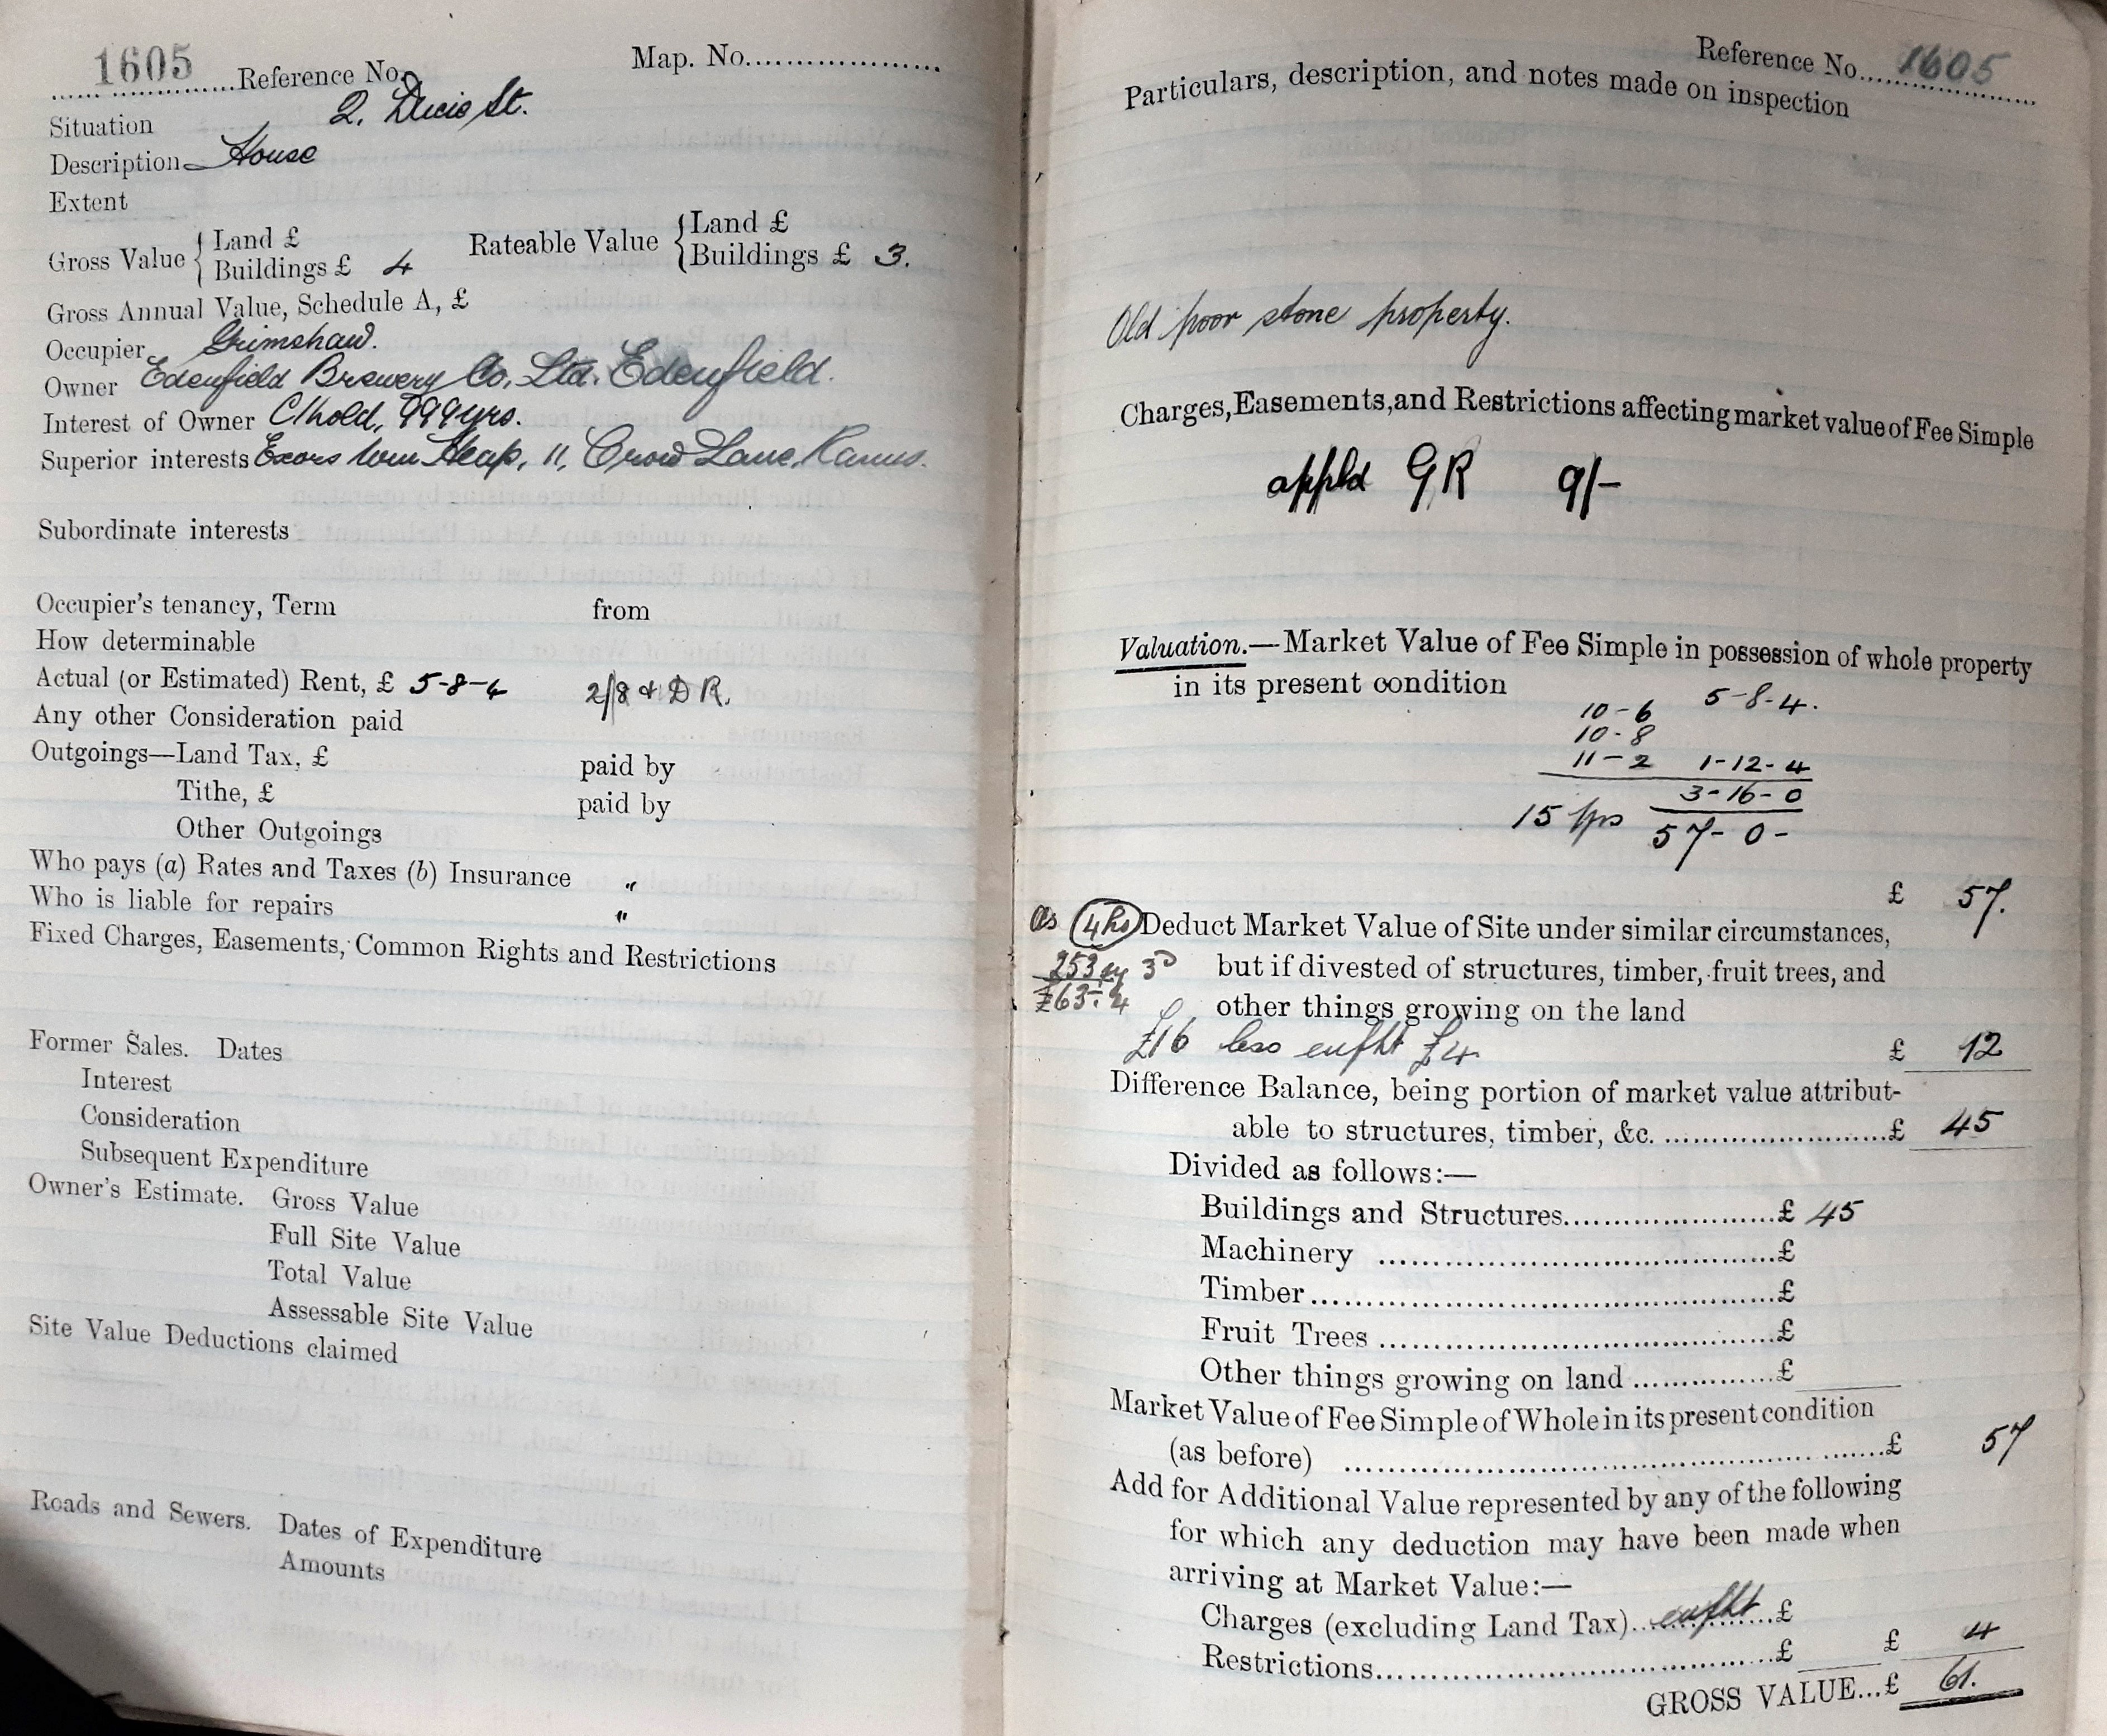 1605 Reference No. Map. No.
Situation 2, Ducie St.
Description House
Extent
Gross Value { Land £ Rateable Value { Land £
Buildings £ 4 Buildings £ 3.
Gross Annual Value, Schedule A, £
Occupier Grimshaw.
Owner Edenfield Brewery Co, Ltd. Edenfield.
Interest of Owner C/hold, 999 yrs.
Superior interests Exors Wm Heap, 11, Crow Lane, Rams.
Subordinate interests
Occupier's tenancy, Term from
How determinable
Actual (or Estimated) Rent, £ 5-8-4 2/8 & D R.
Any other Consideration paid
Outgoings—Land Tax, £ paid by
Tithe, £ paid by
Other Outgoings
Who pays (a) Rates and Taxes (b) Insurance "
Who is liable for repairs "
Fixed Charges, Easements, Common Rights and Restrictions
Former Sales. Dates
Interest
Consideration
Subsequent Expenditure
Owner's Estimate. Gross Value
Full Site Value
Total Value
Assessable Site Value
Site Value Deductions claimed
Roads and Sewers. Dates of Expenditure
Amounts
Reference No. 1605
Particulars, description, and notes made on inspection
Old poor stone property.
Charges, Easements, and Restrictions affecting market value of Fee Simple
appld GR 9/-
Valuation.—Market Value of Fee Simple in possession of whole property
in its present condition
5-8-4.
10-6
10-8
11-2 1-12-4
3-16-0
15 yps 57-0-
£ 57.
as 4 hs Deduct Market Value of Site under similar circumstances,
253 sy but if divested of structures, timber, fruit trees, and
£63. 4 other things growing on the land
£16 less enfht £4 £ 12
Difference Balance, being portion of market value attribut-
able to structures, timber, &c. £ 45
Divided as follows:—
Buildings and Structures £ 45
Machinery £
Timber £
Fruit Trees £
Other things growing on land £
Market Value of Fee Simple of Whole in its present condition
(as before) £ 57
Add for Additional Value represented by any of the following
for which any deduction may have been made when
arriving at Market Value:—
Charges (excluding Land Tax) enfht £
Restrictions £ £ 4
GROSS VALUE...£ 61.